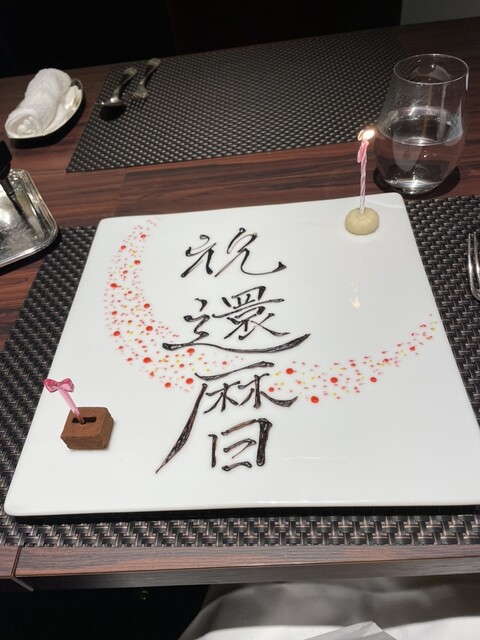 祝
還
暦